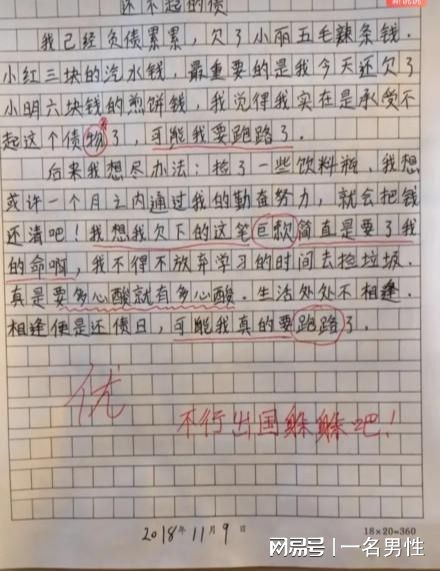 还不起的债
我已经负债累累，欠了小丽五毛辣条钱.
小红三块的汽水钱，最重要的是我今天还欠了
小明六块钱的煎饼钱，我觉得我实在是承受不
起这个债物了，可能我要跑路了.
后来我想尽办法：捡了一些饮料瓶，我想
或许一个月之内通过我的勤奋努力，就会把钱
还清吧！我想我欠下的这笔巨款简直是要了我
的命啊，我不得不放弃学习的时间去捡垃圾.
真是要多心酸就有多心酸.生活处处不相逢.
相逢便是还债日，可能我真的要跑路了.
优
不行出国躲躲吧！
2018年11月9日
18×20=360
网易号|一名男性